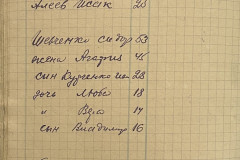 Алеев Исаак 25
Шевченко Сидор 53
жена Агафия 45
сын Куриенко Ив 23
дочь Люба 18
" Вера 17
сын Владимир 16